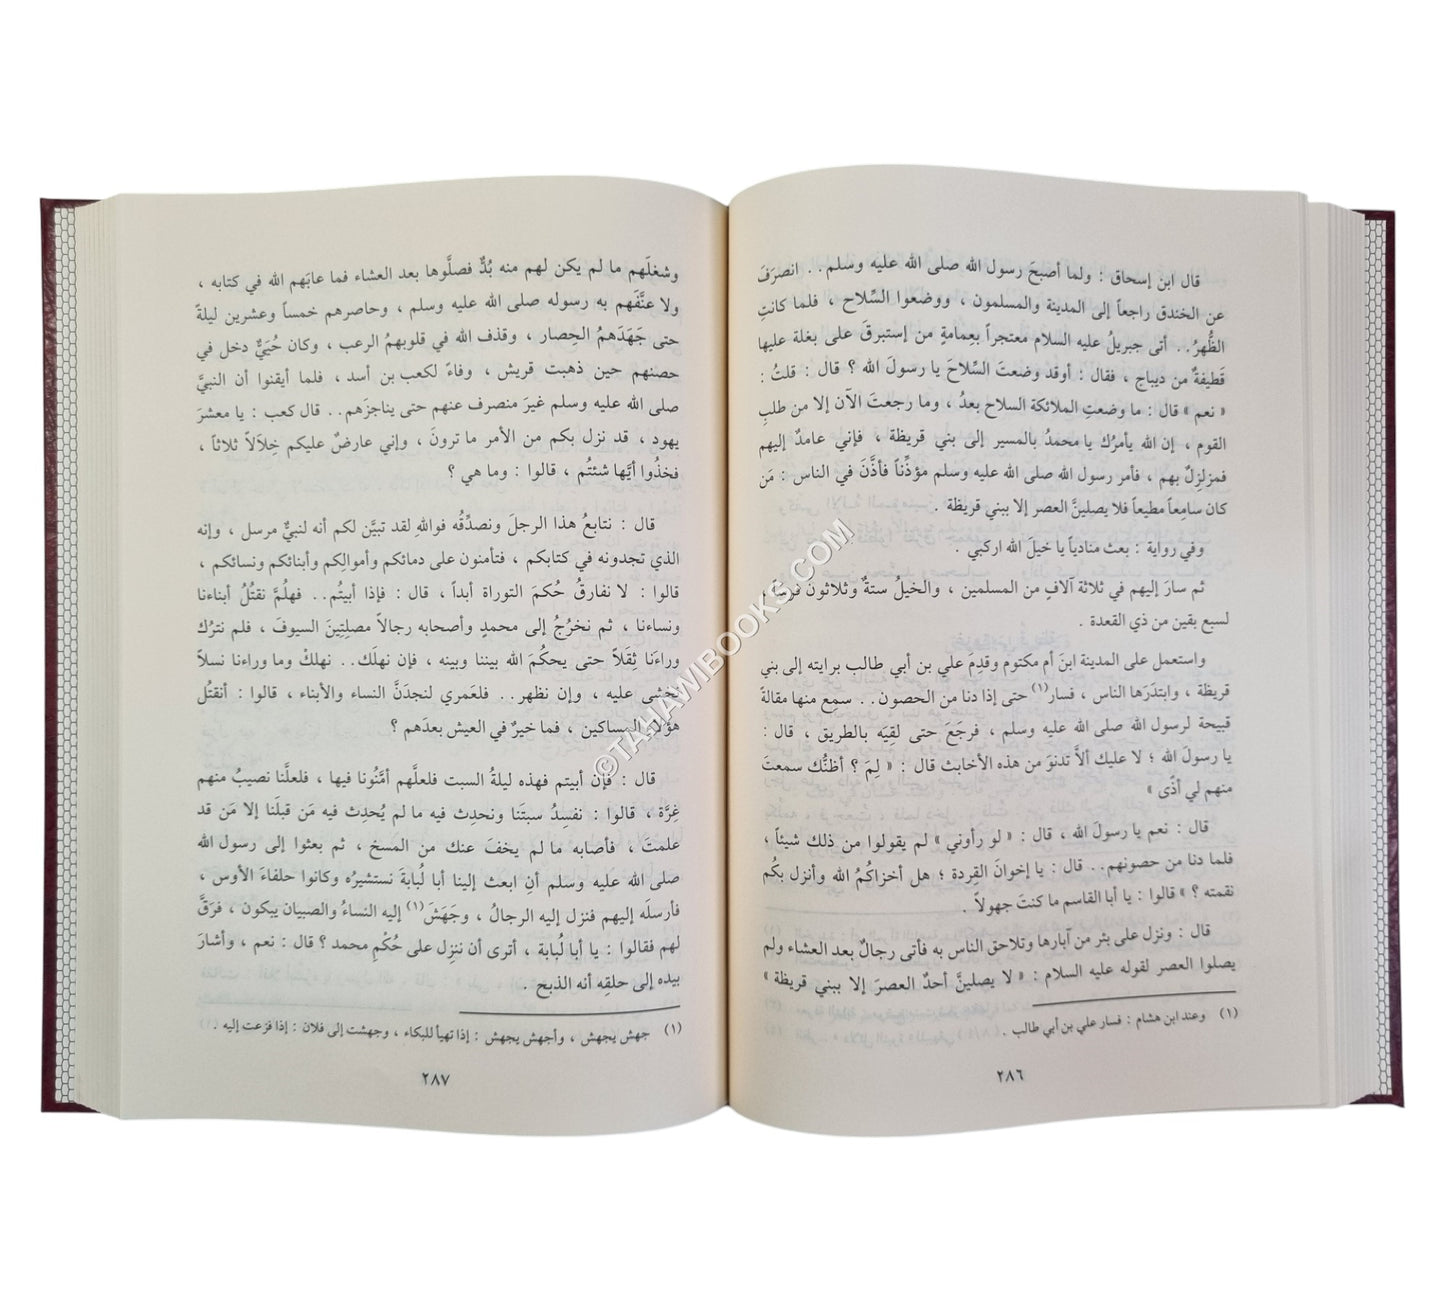 قال ابن إسحاق : ولما أصبحَ رسول الله صلى الله عليه وسلم . . انصرَفَ
عن الخندق راجعاً إلى المدينة والمسلمون ، ووضعوا السِّلاح ، فلما كانتِ
الظُّهرُ . . أتى جبريلُ عليه السلام معتجراً بعِمامةٍ من إستبرقَ على بغلة عليها
قَطيفةٌ من ديباج ، فقال : أوقد وضعتَ السِّلاحَ يا رسولَ الله ؟ قال : قلتُ :
« نعم » قال : ما وضعتِ الملائكة السلاح بعدُ ، وما رجعتَ الآن إلا من طلبِ
القوم ، إن الله يأمرُك يا محمدُ بالمسير إلى بني قريظة ، فإني عامدٌ إليهم
فمزلزِلٌ بهم ، فأمر رسول الله صلى الله عليه وسلم مؤذِّناً فأذَّنَ في الناس : مَن
كان سامِعاً مطيعاً فلا يصلينَّ العصر إلا ببني قريظة .
وفي رواية : بعث منادياً يا خيلَ الله اركبي .
ثم سارَ إليهم في ثلاثة آلافٍ من المسلمين ، والخيلُ ستةٌ وثلاثون فرساً ،
لسبع بقين من ذي القعدة .
واستعمل على المدينة ابنَ أم مكتوم وقدِمَ علي بن أبي طالب برايته إلى بني
قريظة ، وابتدَرَها الناس ، فسار(١) حتى إذا دنا من الحصون . . سمِع منها مقالةً
قبيحة لرسول الله صلى الله عليه وسلم ، فرجَعَ حتى لقِيَه بالطريق ، قال :
يا رسولَ الله ؛ لا عليك ألاَّ تدنوَ من هذه الأخابث قال : « لِمَ ؟ أظنُّك سمعتَ
منهم لي أذًى »
قال : نعم يا رسولَ الله ، قال : « لو رأوني » لم يقولوا من ذلك شيئاً ،
فلما دنا من حصونهم . . قال : يا إخوانَ القِردة ؛ هل أخزاكمُ الله وأنزل بكُم
نقمته ؟ » قالوا : يا أبا القاسم ما كنتَ جهولاً .
قال : ونزل على بئر من آبارها وتلاحق الناس به فأتى رجالٌ بعد العشاء ولم
يصلوا العصر لقوله عليه السلام : « لا يصلينَّ أحدٌ العصرَ إلا ببني قريظة »
(١) وعند ابن هشام : فسار علي بن أبي طالب .
٢٨٦
وشغلَهم ما لم يكن لهم منه بُدٌّ فصلَّوها بعد العشاء فما عابَهم الله في كتابه ،
ولا عنَّفَهم به رسوله صلى الله عليه وسلم ، وحاصرهم خمساً وعشرين ليلةً
حتى جَهَدَهمُ الحِصار ، وقذف الله في قلوبهمُ الرعب ، وكان حُيَيٌّ دخل في
حصنهم حين ذهبت قريش ، وفاءً لكعب بن أسد ، فلما أيقنوا أن النبيَّ
صلى الله عليه وسلم غيرَ منصرف عنهم حتى يناجزَهم . . قال كعب : يا معشرَ
يهود ، قد نزل بكم من الأمر ما ترونَ ، وإني عارضٌ عليكم خِلاَلاً ثلاثاً ،
فخذُوا أيَّها شئتُم ، قالوا : وما هي ؟
قال : نتابعُ هذا الرجلَ ونصدِّقُه فواللهِ لقد تبيَّن لكم أنه لنبيٌّ مرسل ، وإنه
الذي تجدونه في كتابكم ، فتأمنون على دمائكم وأموالِكم وأبنائكم ونسائكم ،
قالوا : لا نفارقُ حُكمَ التوراة أبداً ، قال : فإذا أبيتُم . . فهلُمَّ نقتُلُ أبناءَنا
ونساءَنا ، ثم نخرُجُ إلى محمدٍ وأصحابه رجالاً مصلِتِينَ السيوفَ ، فلم نترُك
وراءَنا ثِقَلاً حتى يحكُمَ الله بيننا وبينه ، فإن نهلَك . . نهلكْ وما وراءَنا نسلاً
نخشى عليه ، وإن نظهر . . فلعَمري لنجدَنَّ النساء والأبناء ، قالوا : أنقتُلُ
هؤلاء المساكين ، فما خيرٌ في العيش بعدَهم ؟
قال : فإن أبيتم فهذه ليلةُ السبت فلعلَّهم أمَّنُونا فيها ، فلعلَّنا نصيبُ منهم
غِرَّة ، قالوا : نفسِدُ سبتَنا ونحدِث فيه ما لم يُحدِث فيه مَن قبلَنا إلا مَن قد
علمتَ ، فأصابه ما لم يخفَ عنك من المسخ ، ثم بعثوا إلى رسول الله
صلى الله عليه وسلم أنِ ابعث إلينا أبا لُبابةَ نستشيرُه وكانوا حلفاءَ الأوس ،
فأرسلَه إليهم فنزل إليه الرجالُ ، وجَهَشَ(١) إليه النساءُ والصبيان يبكون ، فرَقَّ
لهم فقالوا : يا أبا لُبابة ، أترى أن ننزِل على حُكْمِ محمد ؟ قال : نعم ، وأشارَ
بيده إلى حلقِه أنه الذبح .
(١) جهش يجهش ، وأجهش يجهش : إذا تهيأ للبكاء ، وجهشت إلى فلان : إذا فزعت إليه .
٢٨٧
©TAHAWIBOOKS.COM